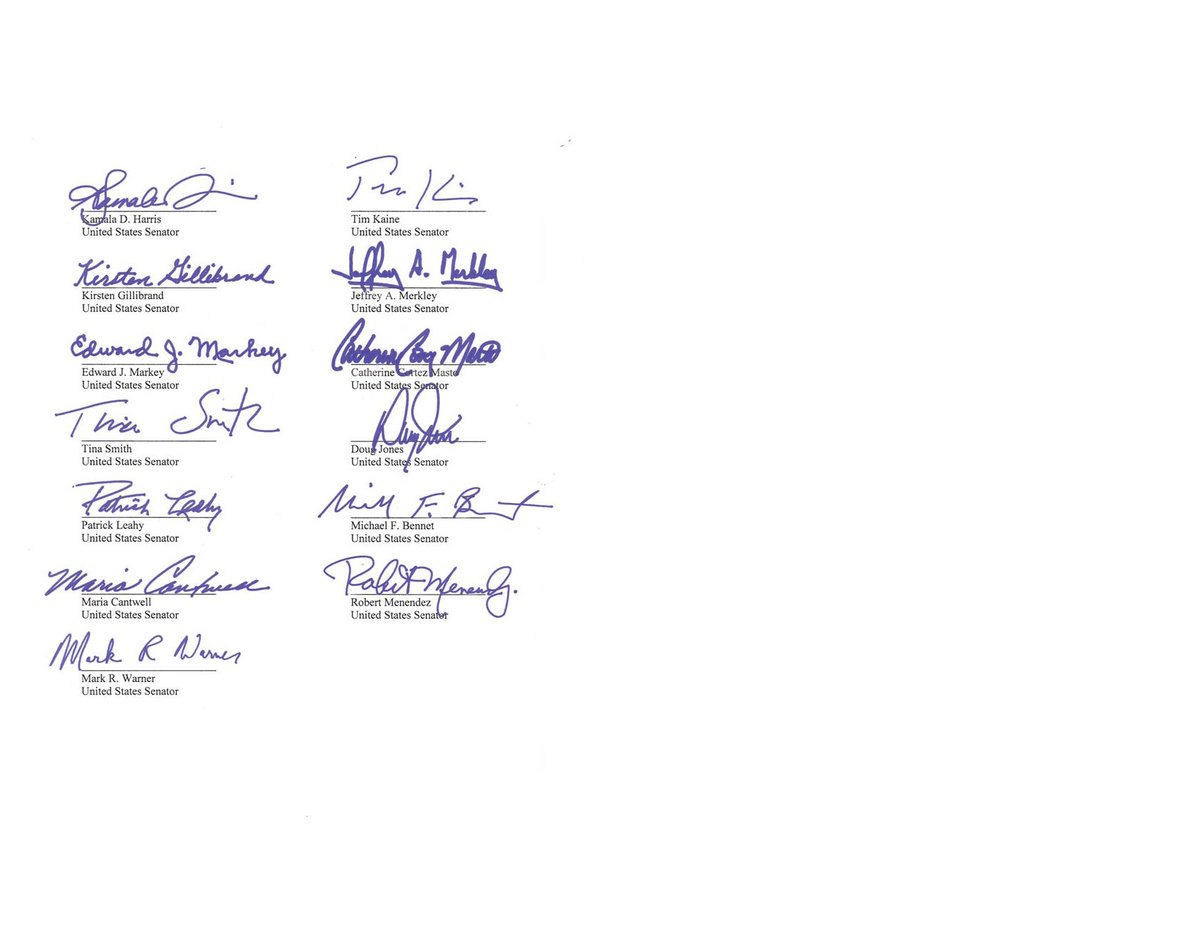 Kamala Harris
Kamala D. Harris
United States Senator
Tim Kaine
Tim Kaine
United States Senator
Kirsten Gillibrand
Kirsten Gillibrand
United States Senator
Jeffrey A. Merkley
Jeffrey A. Merkley
United States Senator
Edward J. Markey
Edward J. Markey
United States Senator
Catherine Cortez Masto
Catherine Cortez Masto
United States Senator
Tina Smith
Tina Smith
United States Senator
Doug Jones
Doug Jones
United States Senator
Patrick Leahy
Patrick Leahy
United States Senator
Michael F. Bennet
Michael F. Bennet
United States Senator
Maria Cantwell
Maria Cantwell
United States Senator
Robert Menendez
Robert Menendez
United States Senator
Mark R Warner
Mark R. Warner
United States Senator